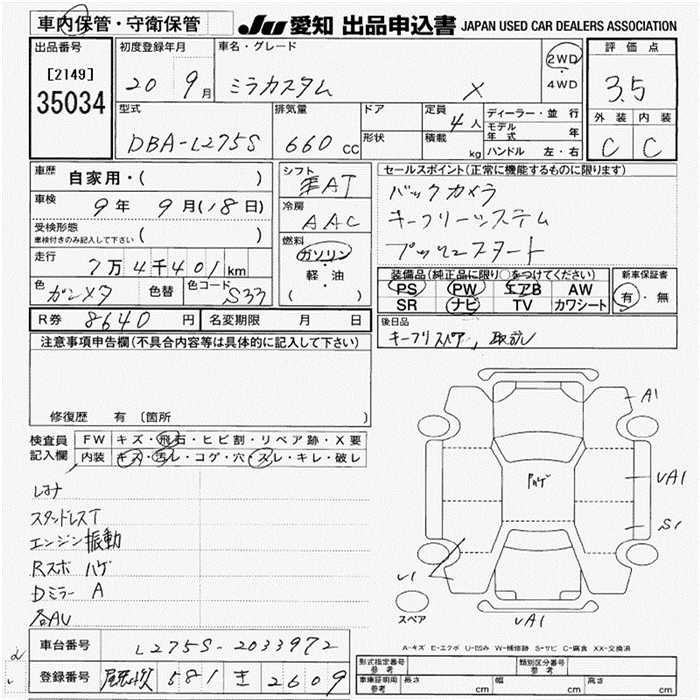 車内保管・守衛保管 JU 愛知 出品申込書 JAPAN USED CAR DEALERS ASSOCIATION
出品番号 初度登録年月 車名・グレード 2WD・4WD 評価点
[2149] 35034 20 9月 ミラカスタム X 3.5
型式 排気量 ドア 定員 4人 ディーラー・並行 外装 内装
DBA-L275S 660cc 形状 積載 kg モデル年式 年 C C
ハンドル 左・右
車歴 自家用・( ) シフト AT セールスポイント(正常に機能するものに限ります)
車検 9年9月(18日) 冷房 AAC バックカメラ
受検形態 車検付きのみ記入して下さい ( ) キーフリーシステム
走行 7万4千401km 燃料 ガソリン・軽・油 ( ) プッシュスタート
色 ガンメタ 色替 色コード S33 装備品(純正品に限り○をつけてください) 新車保証書
PS PW エアB AW 有・無
SR ナビ TV カワシート
R券 8640円 名変期限 月 日 後日品
注意事項申告欄(不具合内容等は具体的に記入して下さい) キーフリスペア,取説
修復歴 有 [箇所 ]
検査員記入欄 FW キズ・飛石・ヒビ割・リペア跡・X要
内装 キズ・汚レ・コゲ・穴・スレ・キレ・破レ
スタッドレスT
エンジン振動
Rスポ ハゲ
Dミラー A
各AU
A1
ハゲ
UA1
S1
U1
スペア
UA1
A-キズ E-エクボ U-凹み W-補修跡 S-サビ C-腐食 XX-交換済
車台番号 L275S-2033972
登録番号 581 き 2609
形式指定番号 参考 類別区分番号 参考
車庫証明用 参考 長さ cm 幅 cm 高さ cm